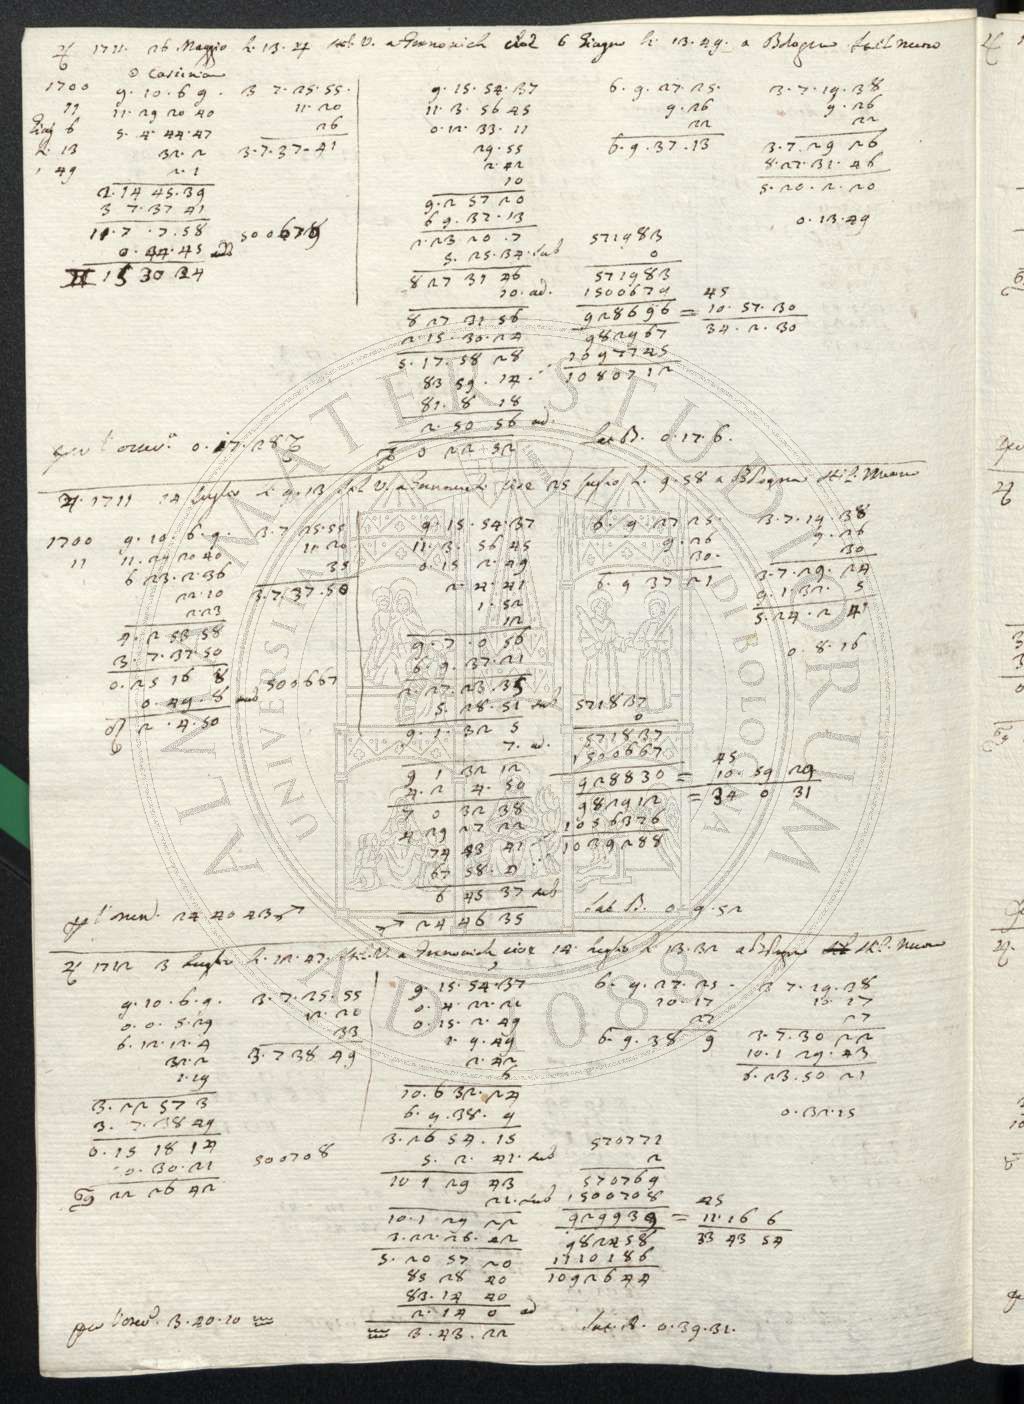 ♃ 1711. 26 Maggio h. 13. 4 stil. V. a Greenwich cioè 6 Giugno h. 13. 49. a Bologna stil nuovo
☉ Cassinian
1700 9. 10. 6 9. 3 7. 25. 55.
11 11. 29 20 40 11. 20
Giug 6 5. 4. 44. 47 26
h. 13 32. 2 3. 7. 37. 41
49 2. 1
2. 14 45. 39
3 7. 37 41
11. 7. 7. 58
0. 44. 45 add 500678
♊ 15 30 24
9. 15. 54. 37
11. 3. 56 45
0. 12. 33. 11
29. 55
2. 42
10
9. 2 57 20
6 9. 37. 13
2. 23 20. 7
5. 25. 34. sub
8 27 31 46
10. ad.
8 27 31 56
2. 15. 30. 24
5. 17. 58 28
83 59. 14.
81. 8 18
2. 50 56 ad.
♉ 0 22 52
6. 9. 27 25.
9. 26
22
6. 9. 37. 13
3. 7. 19. 38
9. 26
22
3. 7. 29 26
8. 27. 31. 46
5. 20. 2. 20
0. 13. 49
571983
0
571983
1500679
928696 = 10. 57. 30
45
982967 34. 2. 30
1697745
1080712
per l'osserv. 0. 17. 28 ♉
Lat B. 0. 17. 6.
♃. 1711 14 Luglio h. 9. 13 stil V. a Greenwich cioè 25 Luglio h. 9. 58 a Bologna stil. Nuovo
1700 9. 10. 6. 9. 3. 7. 25. 55
11 11. 29 20 40 11. 20
6 23. 2. 36 35
22. 10 3. 7. 37. 50
2. 23
4. 2 53 58
3. 7. 37. 50
0. 25 16 8
0. 49. 8 500667
♌ 2. 4. 50
9. 15. 54. 37
11. 3. 56 45
0. 15 2. 49
2. 4. 41
1. 52
12
9. 7. 0 56
6. 9. 37. 21
2. 27. 23. 35
5. 28. 51 sub
9. 1. 32 5
7. ad.
9 1 32 12
4. 2 4. 50
7 0 32 38
4 29 27 22
74 43 41
67 58. 4
6 45 37 sub
♐ 24 46 35
6. 9. 27 25.
9. 26
30.
6. 9 37 21
3. 7. 19. 38
9. 26
30
3. 7. 29. 24
9. 1. 32. 5
5. 24. 2 41
0. 8. 16
571837
0
571837
1500667
928830 = 10. 59 29
45
982912 = 34 0 31
1056376
1039288
per l'osserv. 24 40 43 ♐
Lat B. 0. 9. 52
♃ 1712 3 Luglio h. 12. 47. stil. V. a Greenwich cioè 14. Luglio h. 13. 32 a Bologna stil. Nuovo
9. 10. 6. 9. 3. 7. 25. 55
0. 0. 5. 29 12. 20
6. 12. 12. 4 33
32. 2 3. 7 38 49
1. 19
3. 22 57 3
3. 7. 38 49
0. 15 18 14
0. 30. 21 500708
♋ 22 26 42
9. 15. 54. 37
0. 4. 22. 21
0. 15. 2. 49
2. 9. 49
2. 42
6
10. 6 32. 24
6. 9. 38. 9
3. 26 54. 15
5. 2. 41. sub
10 1 29 43
21. sub
10. 1 29 22
3. 22. 26. 42
5. 20 57 20
85 28 40
83. 14 40
2. 14 0 ad
♒ 3. 43. 22
6. 9. 27. 25.
10. 17
27
6. 9. 38 9
3 7. 19. 38
10. 17
27
3. 7. 30 22
10. 1 29. 43
6. 23. 50 21
0. 32. 15
570771
2
570769
1500708
929939 = 11. 16 6
45
982458 33 43 54
1110186
1092644
per l'osserv. 3. 40. 10 ♒
Lat. A. 0. 39. 31.
ALMA MATER STUDIORUM
UNIVERSITÀ DI BOLOGNA
A.D. 1088